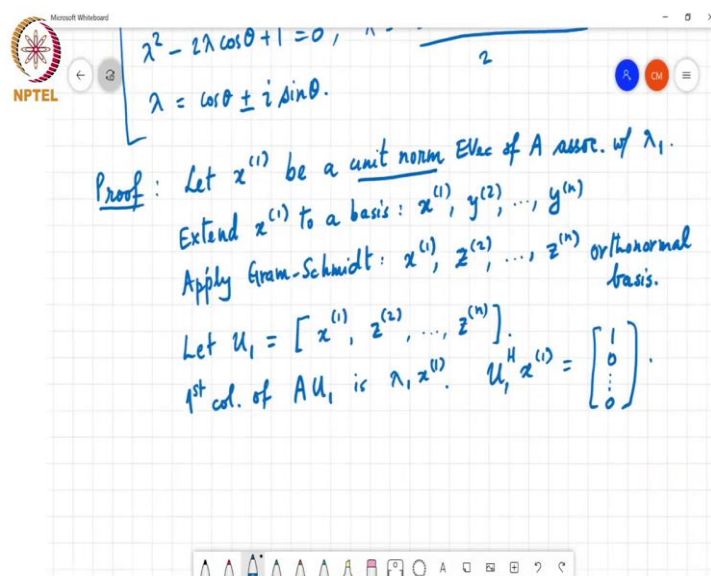 Microsoft Whiteboard
NPTEL
CM
λ² - 2λ cosθ + 1 = 0, λ =
2
λ = cosθ ± i sinθ.
Proof : Let x⁽¹⁾ be a unit norm EVec of A assoc. w/ λ₁.
Extend x⁽¹⁾ to a basis : x⁽¹⁾, y⁽²⁾, ..., y⁽ⁿ⁾
Apply Gram-Schmidt : x⁽¹⁾, z⁽²⁾, ..., z⁽ⁿ⁾ orthonormal
basis.
Let U₁ = [ x⁽¹⁾, z⁽²⁾, ..., z⁽ⁿ⁾ ].
1st col. of AU₁ is λ₁x⁽¹⁾. U₁ᴴ x⁽¹⁾ = [ 1 0 ⋮ 0 ].